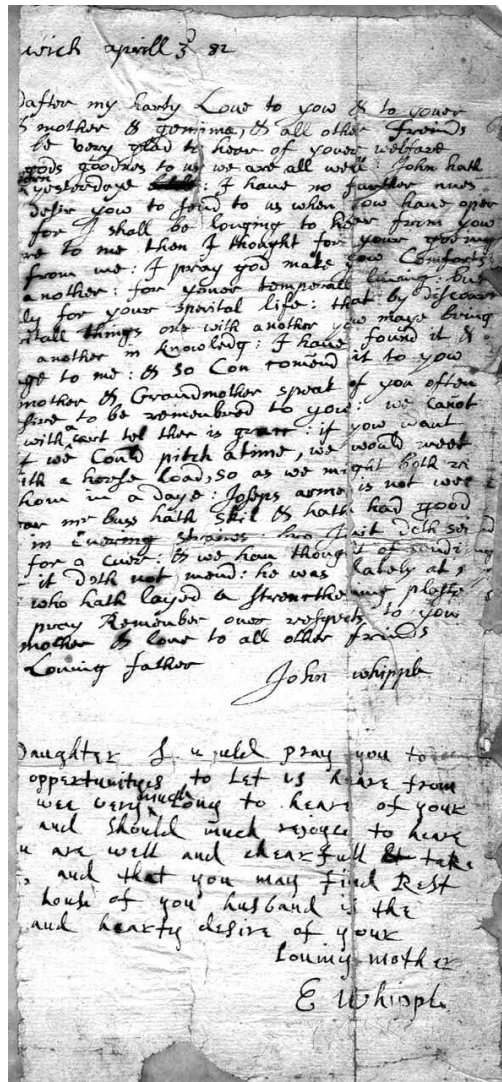 wich aprill 3d 82
after my harty Love to yow & to yower
mother & gemima, & all other Friends
be very glad to heer of yower welfare
gods goodnes to us we are all well: John hath
yesterdaye : I have no further nues
desir you to send to us when yow have oper
for I shall be longing to heer from yow
re to me then I thought for your going
from me: I pray god make yow Comforts
another: for yower temperall living: but
ly for youre spirital life: that by discours
all things one with another yow maye bring
another in knowledg: I have found it &
ge to me: & so Con comend it to yow
mother & Grandmother speak of you often
sire to be remembred to you: we canot
with a cart tel ther is grass: if you want
if we Could pitch a time, we would meet
ith a horse load, so as we might both re
hom in a daye: Joseps arme is not wel
me buss hath skil & hath had good
in
for a cuer: & we haue thought of sending
it doth not mend: he was lately at
who hath layed a strengthening plaste
pray Remember ower respects to yow
mother & love to all other friends
Loving father
John whipple
Daughter I would pray you to
oppertunityes to Let us heare from
wee very much Long to heare of your
and should much rejoyce to heare
u are well and chearfull take
and that you may find Rest
house of you husband is the
and hearty desire of your
Loving mother
E Whipple